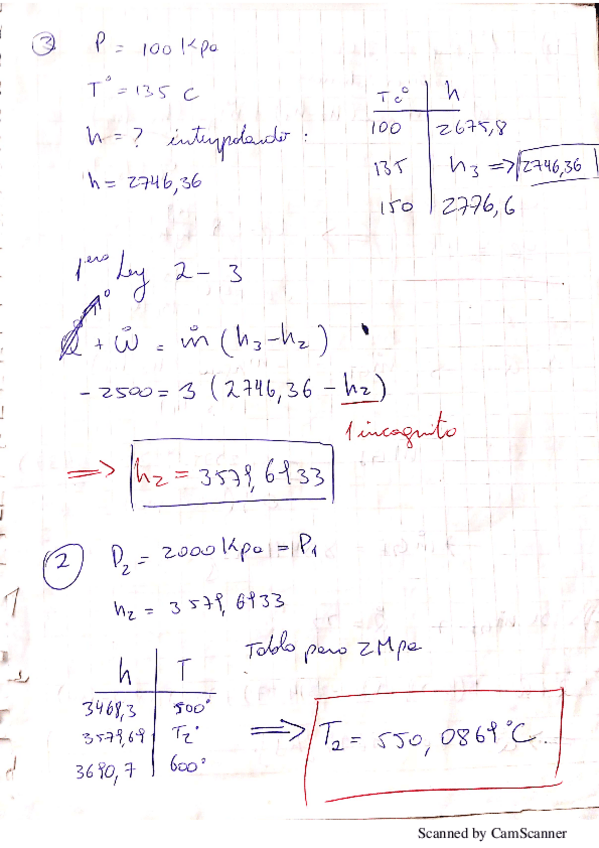 ③ P = 100 Kpa
T° = 135 C
h = ? interpolando :
h = 2746,36
Tc° | h
100 | 2675,8
135 | h3 => 2746,36
150 | 2776,6
1era Ley 2 - 3
Q̇ + ẇ = ṁ (h3 - h2)
- 2500 = 3 (2746,36 - h2)
1 incognita
=> h2 = 3579,6933
② P2 = 2000 Kpa = P1
h2 = 3579,6933
Tabla para 2 Mpa
h | T
3468,3 | 500°
3579,69 | T2°
3690,7 | 600°
=> T2 = 550,0869 °C
Scanned by CamScanner